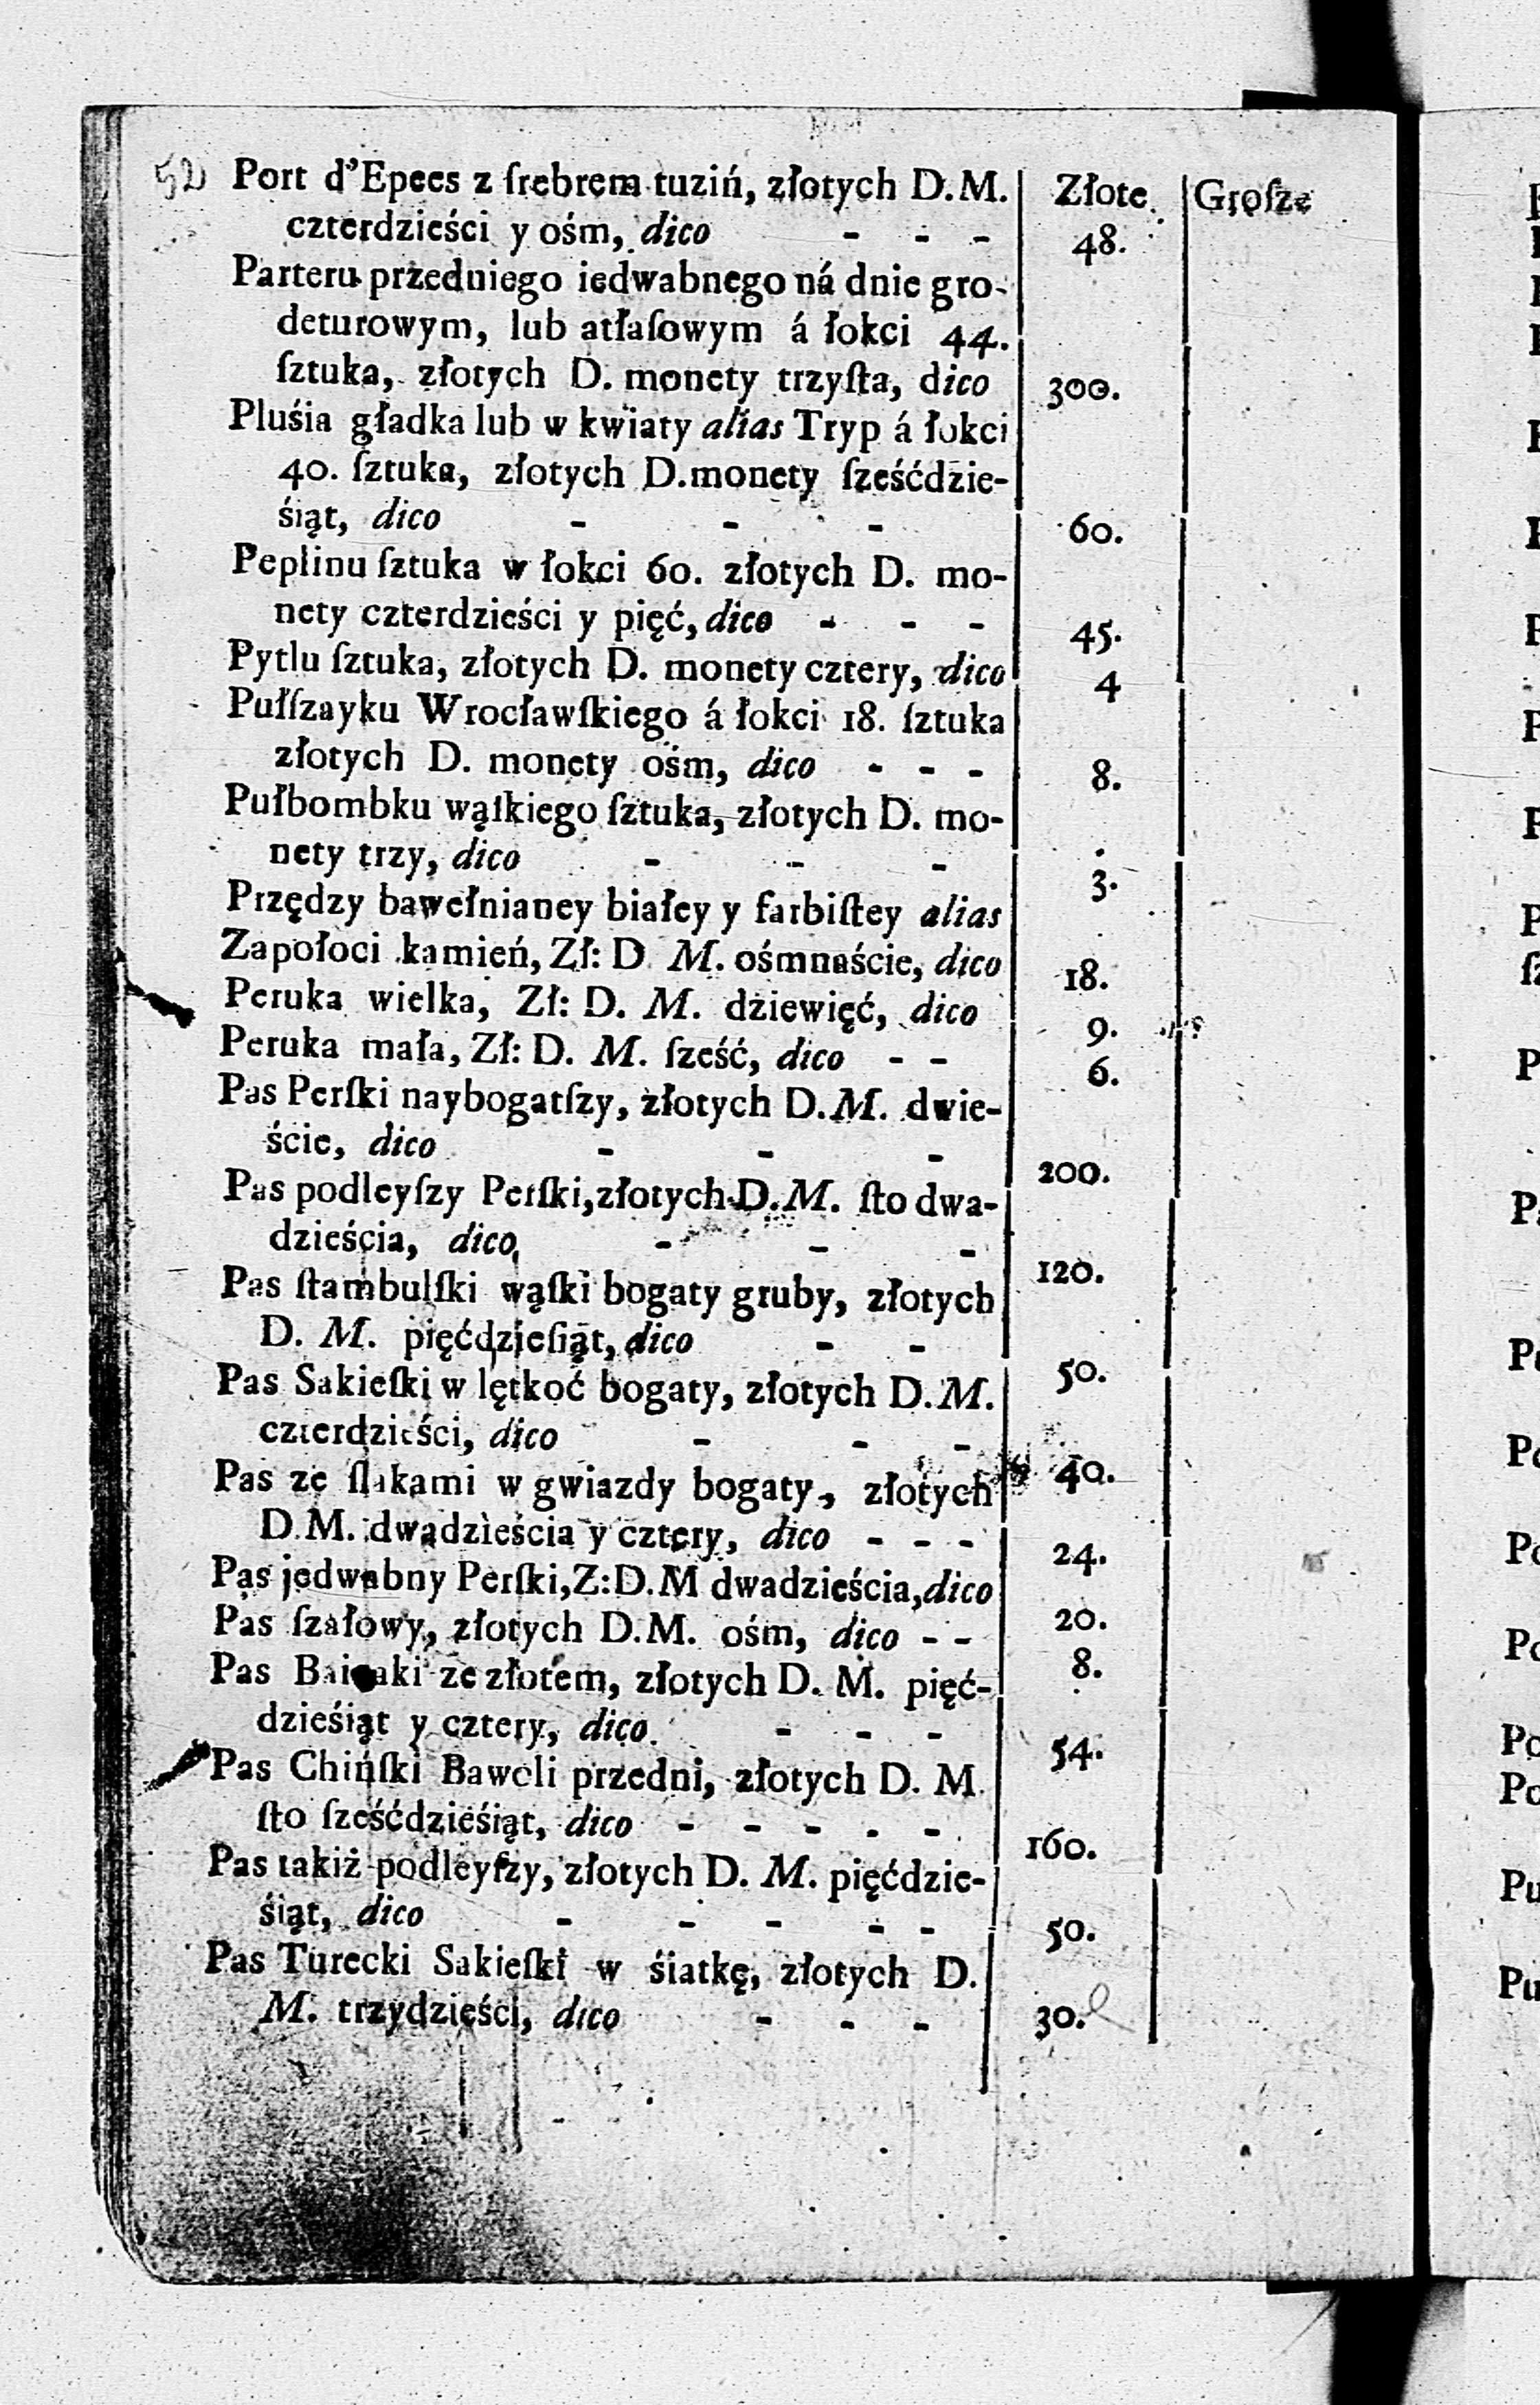 52 Port d'Epees z ſrebrem tuziń, złotych D.M. Złote. Groſze
czterdzieści y ośm, dico - - - 48.
Parteru przedniego iedwabnego ná dnie gro-
deturowym, lub atłaſowym á łokci 44.
ſztuka, złotych D. monety trzyſta, dico 300.
Pluśia gładka lub w kwiaty alias Tryp á łokci
40. ſztuka, złotych D.monety ſześćdzie-
śiąt, dico - - - 60.
Peplinu ſztuka w łokci 60. złotych D. mo-
nety czterdzieści y pięć, dico - - - 45.
Pytlu ſztuka, złotych D. monety cztery, dico 4
Pułſzayku Wrocławſkiego á łokci 18. ſztuka
złotych D. monety ośm, dico - - - 8.
Pułbombku wąſkiego ſztuka, złotych D. mo-
nety trzy, dico - - - 3.
Przędzy bawełnianey białey y farbiſtey alias
Zapołoci kamień, Zł: D M. ośmnaście, dico 18.
Peruka wielka, Zł: D. M. dziewięć, dico 9.
Peruka mała, Zł: D. M. ſześć, dico - - 6.
Pas Perſki naybogatſzy, złotych D.M. dwie-
ście, dico - - - 200.
Pas podleyſzy Perſki, złotych D.M. ſto dwa-
dzieścia, dico - - - 120.
Pas ſtambulſki wąſki bogaty gruby, złotych
D. M. pięćdzieſiąt, dico - - 50.
Pas Sakieſki w lętkoć bogaty, złotych D.M.
czterdzieści, dico - - - 40.
Pas ze ſlakami w gwiazdy bogaty, złotych
D.M. dwadzieścia y cztery, dico - - - 24.
Pas jedwabny Perſki, Z:D.M dwadzieścia, dico 20.
Pas ſzałowy, złotych D.M. ośm, dico - - 8.
Pas ze złotem, złotych D. M. pięć-
dzieśiąt y cztery, dico - - - 54.
Pas Chińſki Baweli przedni, złotych D. M.
ſto ſześćdzieśiąt, dico - - - - - 160.
Pas takiż podleyſzy, złotych D. M. pięćdzie-
śiąt, dico - - - - - 50.
Pas Turecki Sakieſki w śiatkę, złotych D.
M. trzydzieści, dico - - - 30.